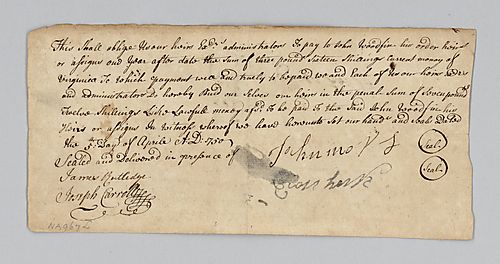 This Shall oblige us our heirs Exd. administrators To pay to John Woodfin his order heirs
or assigns one year after date the Sum of three pound Sixteen Shillings current money of
Virginia To which payment well and truly to be paid we and Each of us our heirs
and administrators Do hereby Bind our Selves our heirs in the penal Sum of Seven pound
Twelve Shillings Like Lawfull money to be paid To the Said John Woodfin his
Heirs or assigns In witness whereof we have hereunto Set our hands and Seals Dated
the Day of Aprile A.D. 1750
Sealed and Delivered in presence of
Seal
James Rutledge
Seal
Joseph Carroll